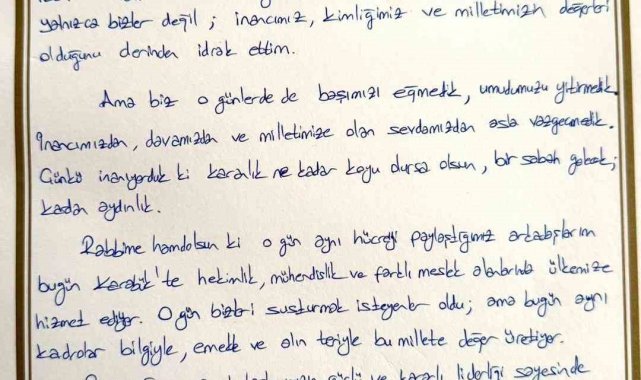 yalnızca bizler değil; inancımız, kimliğimiz ve milletimizin değerleri
olduğunu derinden idrak ettim.
Ama biz o günlerde de başımızı eğmedik, umudumuzu yitirmedik.
İnancımızdan, davamızdan ve milletimize olan sevdamızdan asla vazgeçmedik.
Çünkü inanıyorduk ki karanlık ne kadar koyu olursa olsun, bir sabah gelecek;
kadar aydınlık.
Rabbime hamdolsun ki o gün aynı hücreyi paylaştığımız arkadaşlarım
bugün Karabük'te hekimlik, mühendislik ve farklı meslek alanlarında ülkemize
hizmet ediyor. O gün bizleri susturmak isteyenler oldu; ama bugün aynı
kadrolar bilgiyle, emekle ve alın teriyle bu millete değer üretiyor.
ve kararlı liderliği sayesinde